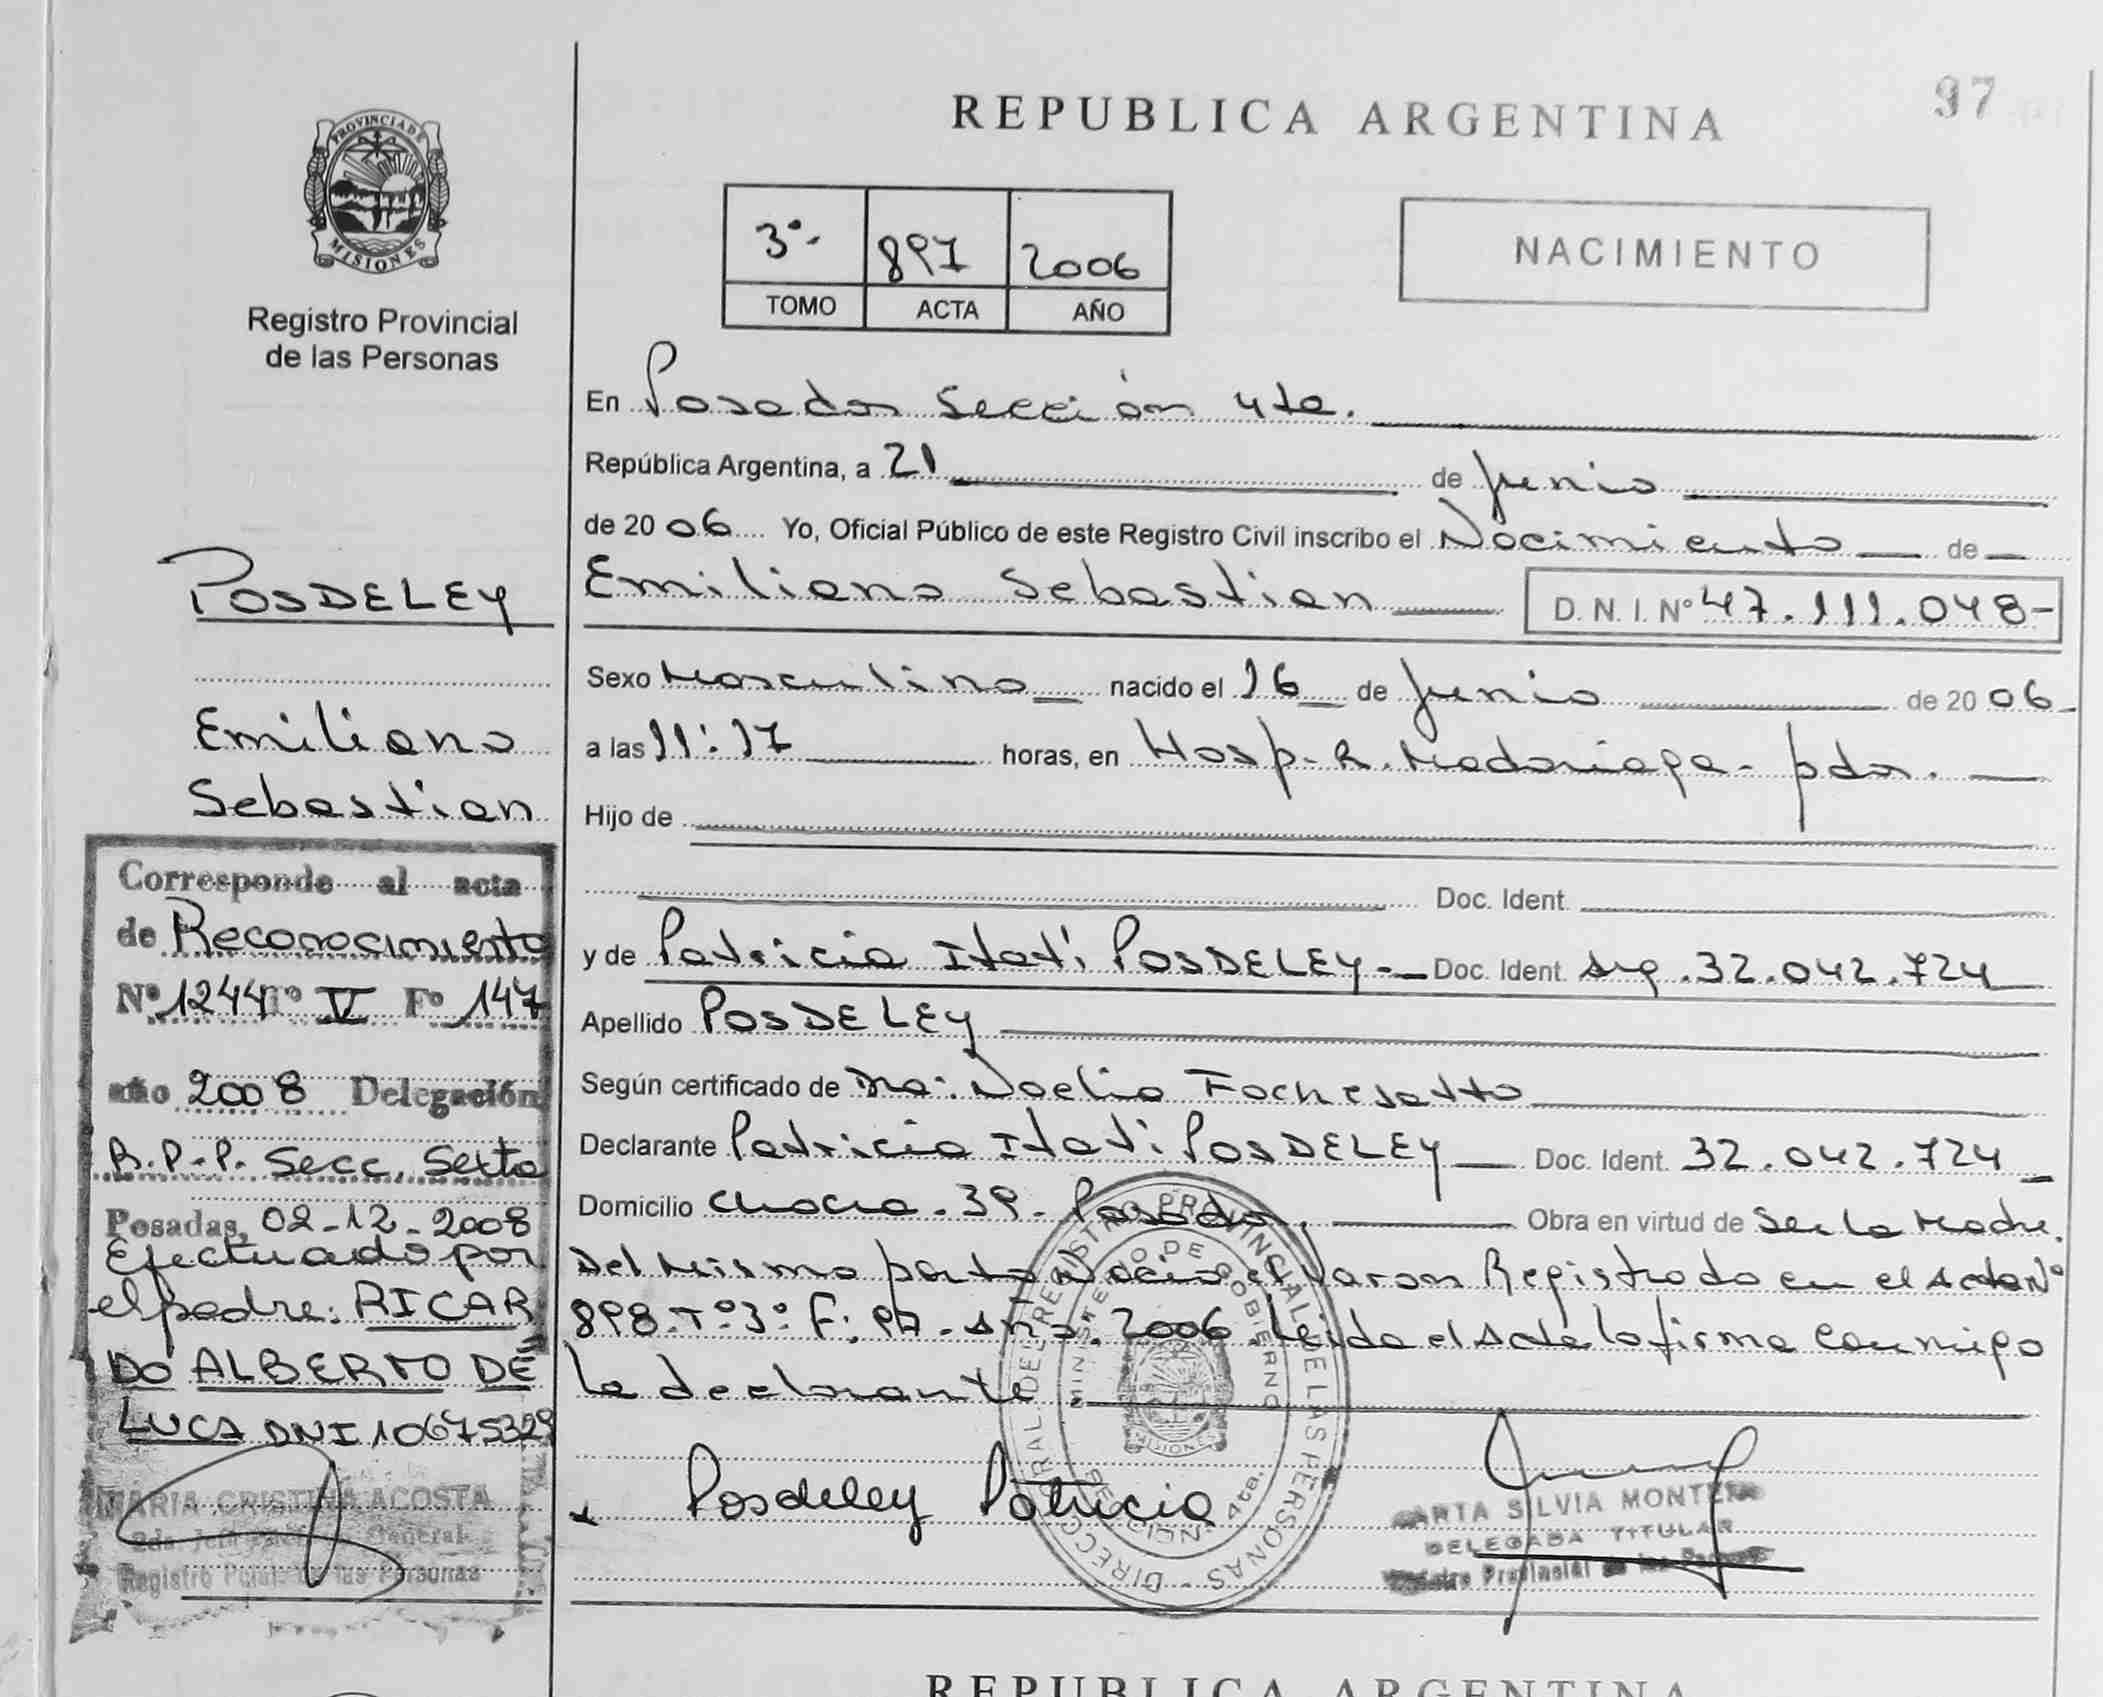 REPUBLICA ARGENTINA
97
PROVINCIA DE
MISIONES
Registro Provincial
de las Personas
3º- 897 2006
TOMO ACTA AÑO
NACIMIENTO
En Posadas Sección 4ta.
República Argentina, a 21 de Junio
de 2006 Yo, Oficial Público de este Registro Civil inscribo el Nacimiento de
Emiliano Sebastian D. N. I. Nº 47.111.048-
Sexo Masculino nacido el 16 de Junio de 2006
a las 11:17 horas, en Hosp. R. Madariaga - pdas.
Hijo de
Doc. Ident.
y de Patricia Itatí POSDELEY - Doc. Ident. Arg. 32.042.724
Apellido POSDELEY
Según certificado de Dra: Noelia Fochesatto
Declarante Patricia Itatí POSDELEY Doc. Ident. 32.042.724
Domicilio Chacra - 39 - Posadas. Obra en virtud de Ser la Madre.
Del Mismo parto Nació el Varon Registrado en el Acta Nº
898. Tº 3º F: 97 - Año: 2006 Leida el Acta la firma conmigo
la declarante
Posdeley Patricia
POSDELEY
Emiliano
Sebastian
Corresponde al acta
de Reconocimiento
Nº 1244 Tº IV Fº 147
año 2008 Delegación
R.P.P. Secc. Sexta
Posadas, 02-12-2008
Efectuado por
el padre: RICAR
DO ALBERTO DE
LUCA DNI 10675329
MARIA CRISTINA ACOSTA
General
Registro Pcial. de las Personas
DIRECCION GRAL. DEL REGISTRO PROVINCIAL DE LAS PERSONAS
MINISTERIO DE GOBIERNO
MISIONES
SECCION 4ta.
MARTA SILVIA MONTERO
DELEGADA TITULAR
Registro Provincial de las Personas
REPUBLICA ARGENTINA